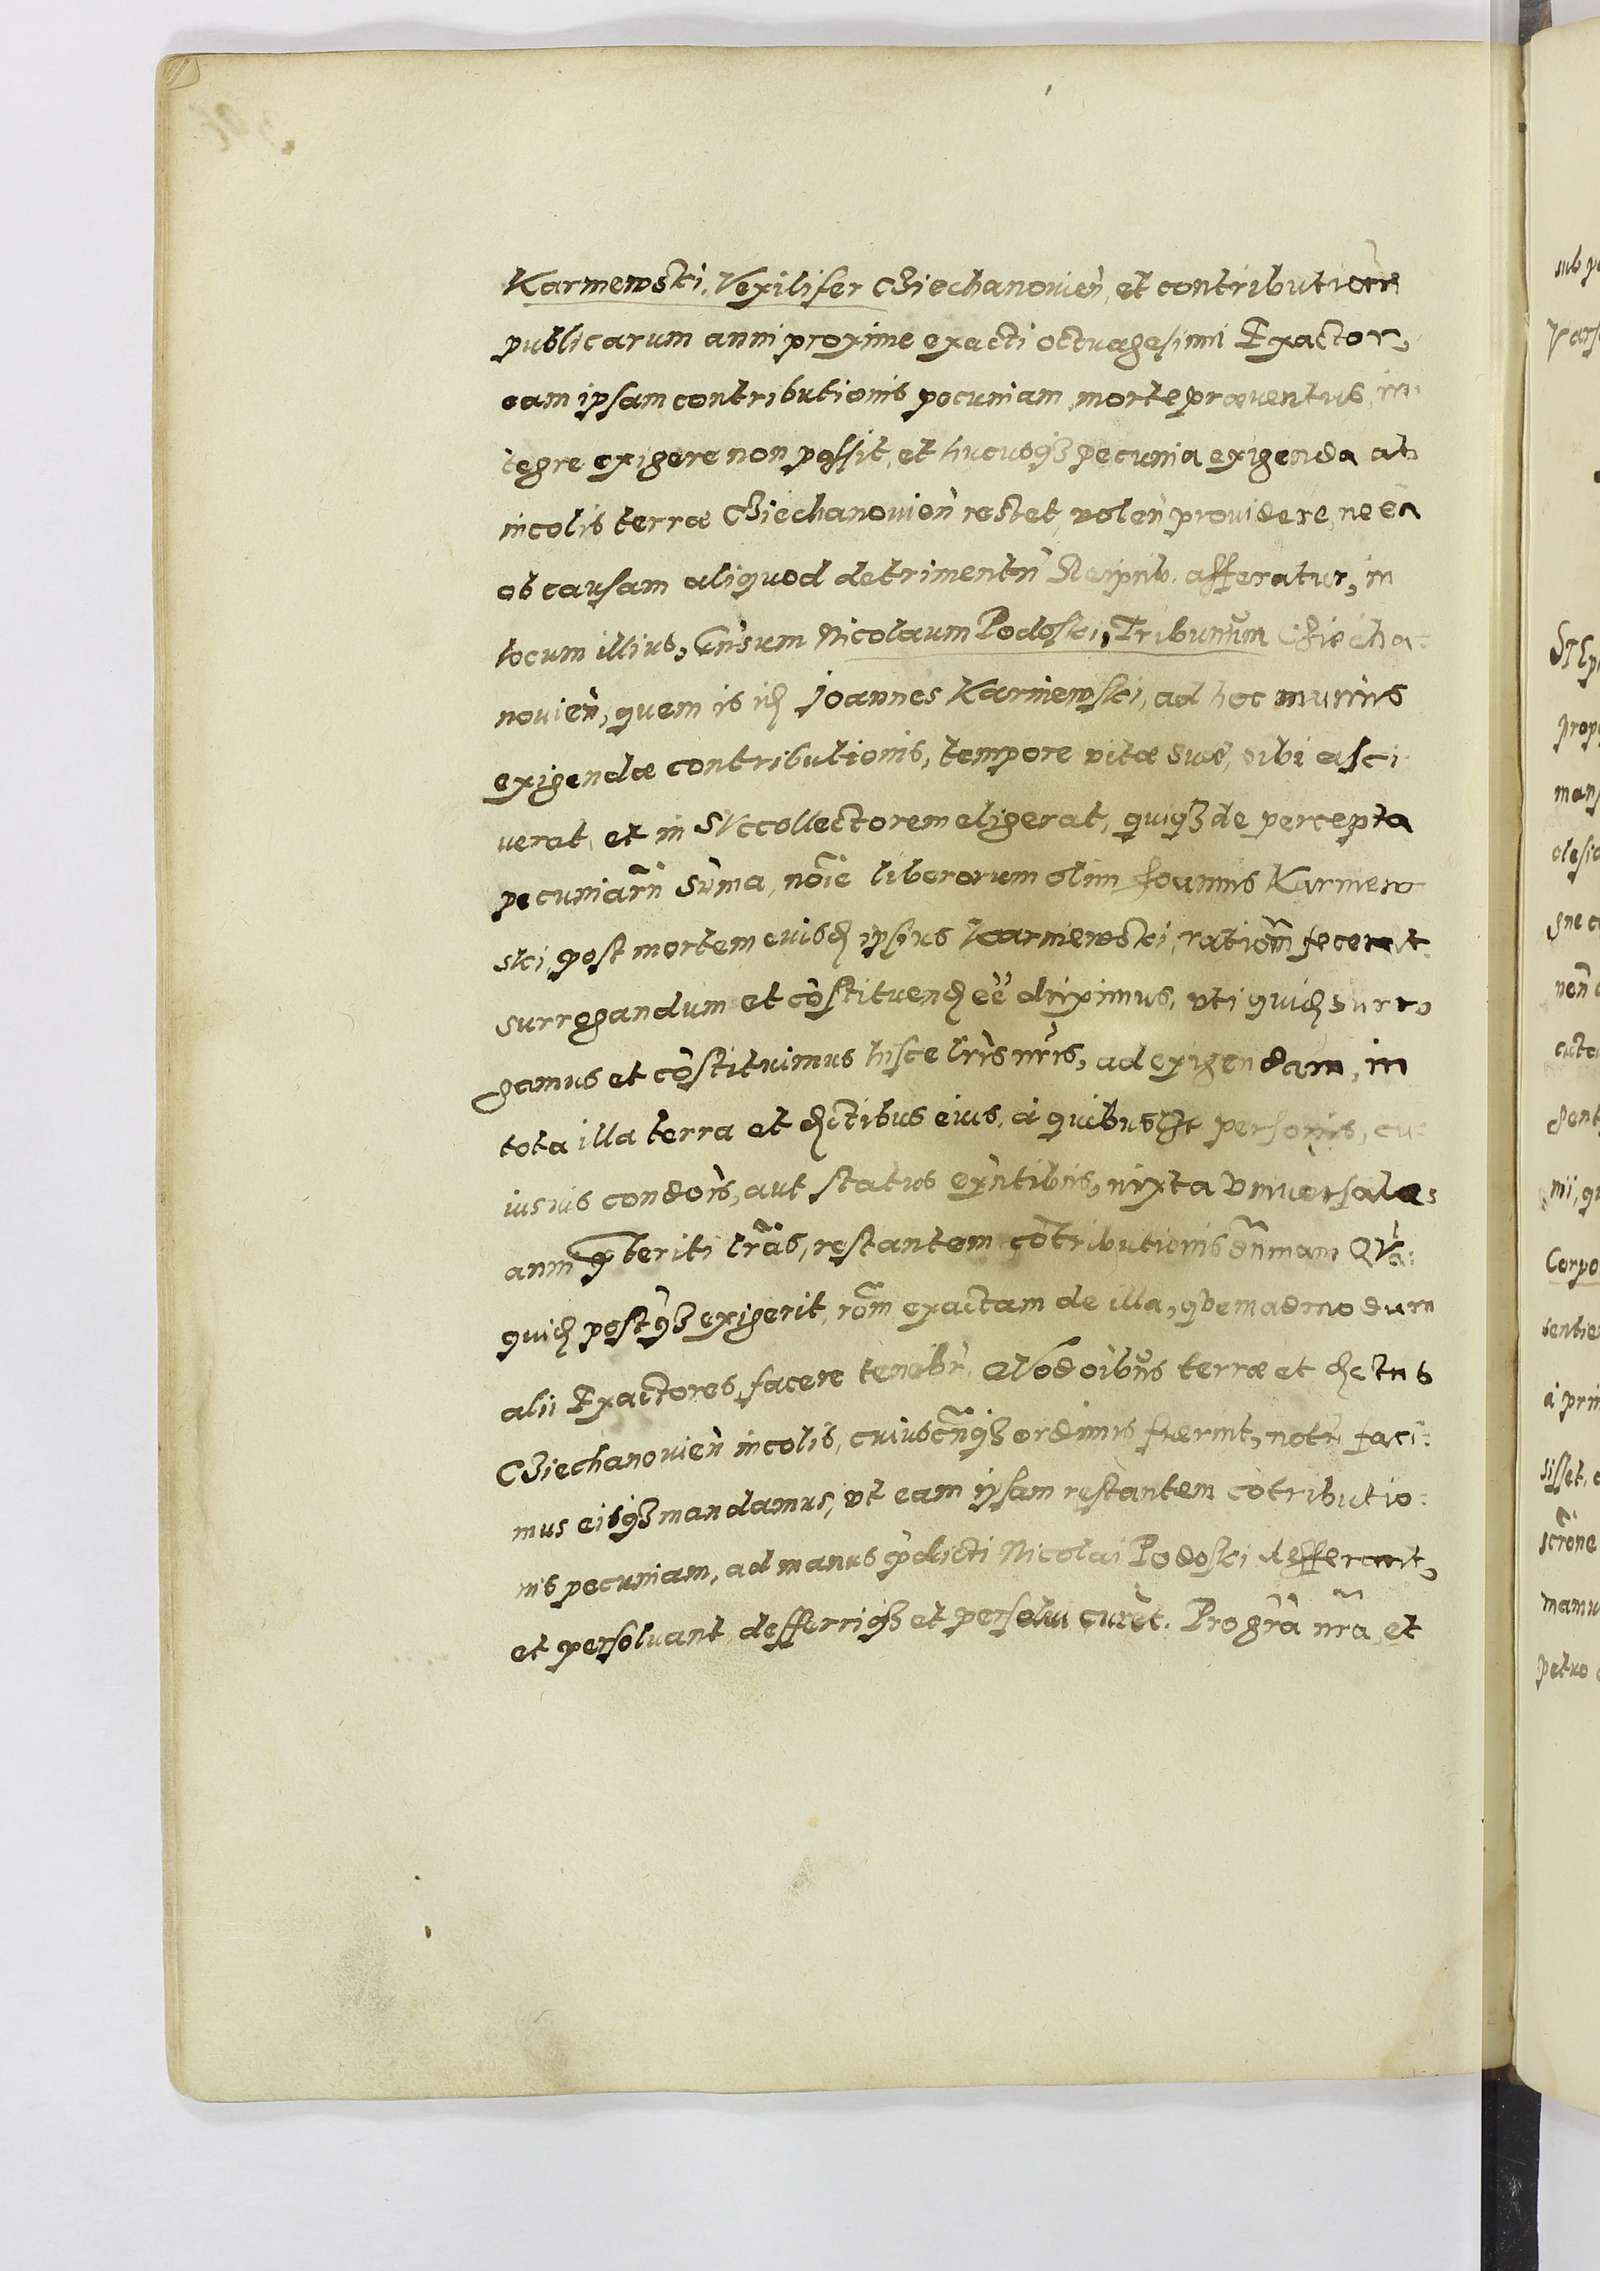 Karniewski, Vexilifer Ciechanovieñ, et contributionũ
publicarum anni proxime exacti octuagesimi Exactor,
eam ipsam contributionis pecuniam, morte præventus, in
tegre exigere non possit, et hucusq3 pecunia exigenda ab
incolis terræ Ciechanovień restet, voleñ providere, ne ea
ob causam aliquod detrimentũ Reipub. afferatur, in
locum illius, Gñsum Nicolaum Podoski, Tribunum Ciecha:
novień, quem is id Joannes Karniewski, ad hoc munus
exigendæ contributionis, tempore vitæ suæ, sibi asci
verat, et in Succollectorem eligerat, quiq3 de percepta
pecuniarũ sũma, nõie liberorum olim Joannis Karniew
ski, post mortem eiusd ipsius Karniewski, rationẽ fecerat.
surrogandum et cõstituend eẽ duximus, uti quid surro
gamus et cõstituimus hisce lrĩs nrĩs, ad exigendam, in
tota illa terra et dictibus eius, à quibusvis personis, cu:
iusvis condõis, aut status exñtibus, iuxta Universales
anni præteriti lrãs, restantem cõtributionis summam Quã:
quid postq3 exigerit, rõm exactam de illa, quemadmodum
alii Exactores, facere tenebr̃. Quod oibus terræ et dictus
Ciechanovień incolis, cuiuscunq3 ordinis fuerint, notũ faci:
mus eisq3 mandamus, ut eam ipsam restantem cõtributio:
nis pecuniam, ad manus p̃dicti Nicolai Podoski defferant,
et persolvant, defferriq3 et persolvi curẽt. Pro grã nrã, et